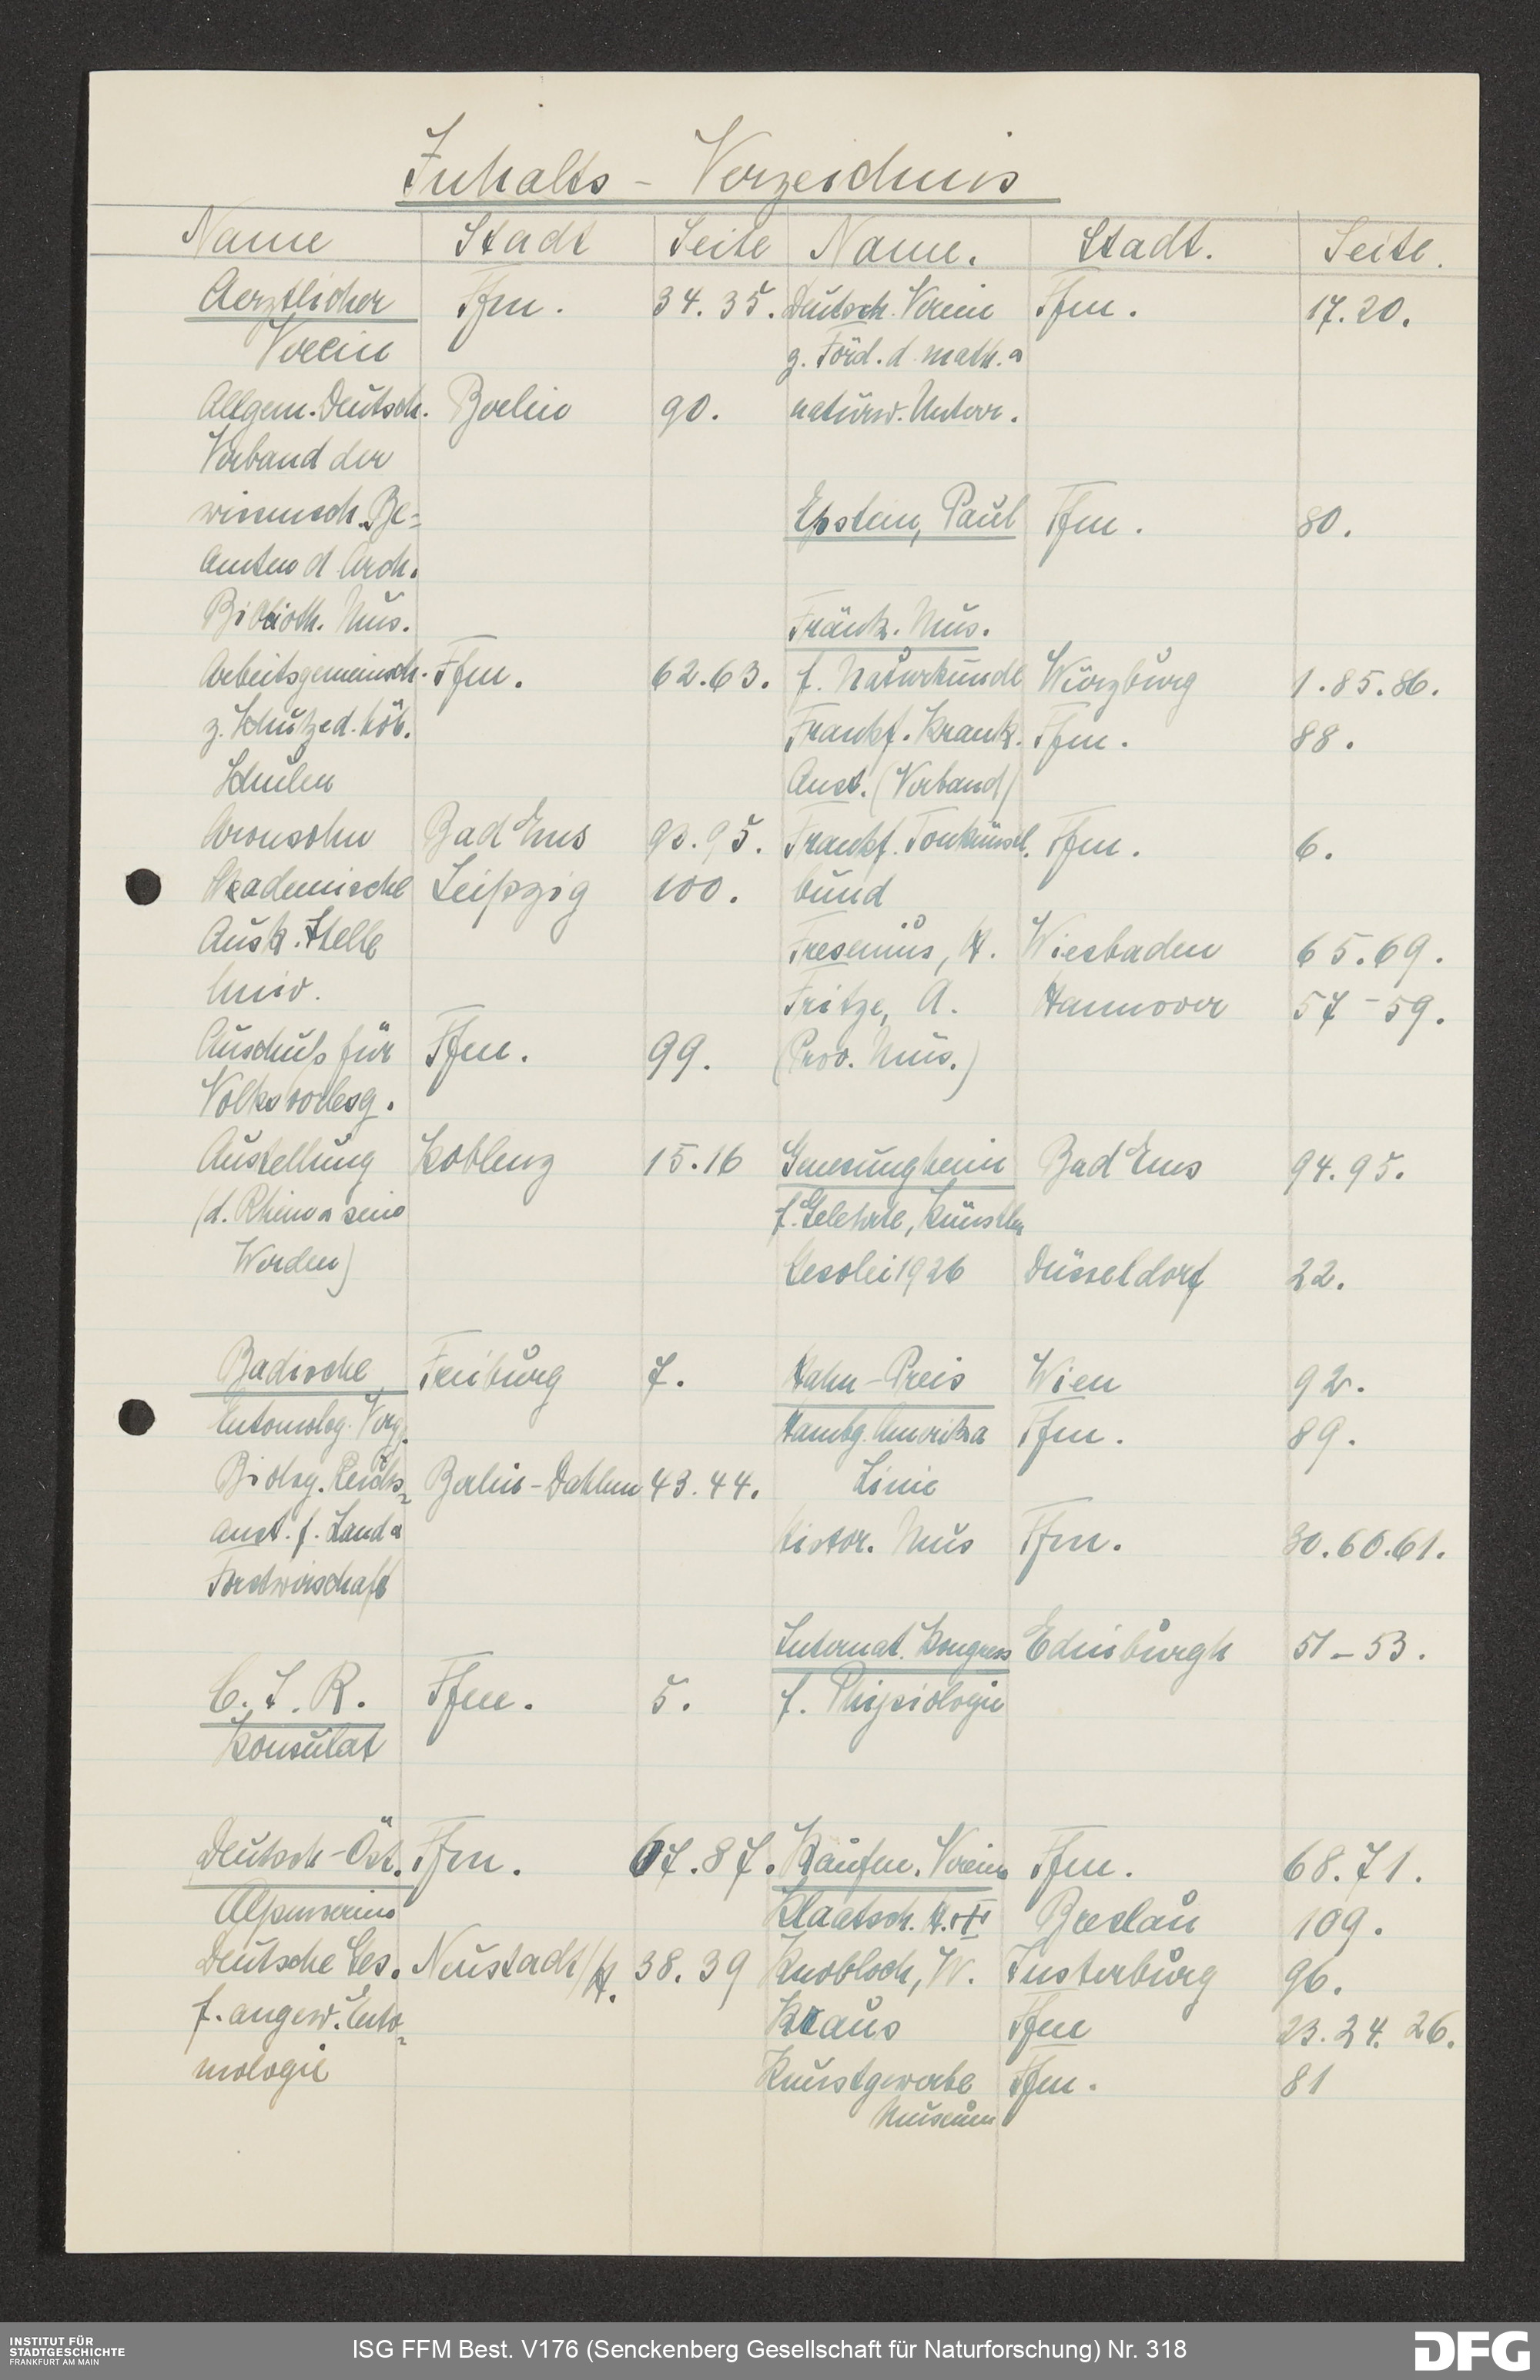 Inhalts - Verzeichnis
Name Stadt Seite
Aerztlicher Ffm. 34. 35.
Verein
Allgem. Deutsch. Berlin 90.
Verband der
wissensch. Be-
amten d Arch.
Biblioth. Mus.
Arbeitsgemeinsch. Ffm. 62.63.
z. Schutze d. höh.
Schulen
Aronsohn Bad Ems 93.95.
Akademische Leipzig 100.
Ausk. Stelle
Univ.
Auschuß für Ffm. 99.
Volksvorlesg.
Austellung Koblenz 15.16
(d. Rhein u sein
Werden)
Badische Freiburg 7.
Entomolog. Verg.
Biolog. Reichs- Berlin-Dahlem 43.44.
anst. f. Land u
Forstwirschaft
C. S. R. Ffm. 5.
Konsulat
Deutsch-Öst. Ffm. 67.87.
Alpenverein
Deutsche Ges. Neustadt/H. 38.39
f. angew. Ento-
mologie
Name. Stadt. Seite.
Deutsch. Verein Ffm. 17.20.
z. Förd. d. math. u
naturw. Unterr.
Epstein, Paul Ffm. 80.
Fränk. Mus.
f. Naturkunde Würzburg 1.85.86.
Frankf. Krank. Ffm. 88.
Anst. (Verband)
Frankf. Tonkünstl. Ffm. 6.
bund
Fresenius, H. Wiesbaden 65.69.
Fritze, A. Hannover 57-59.
(Prov. Mus.)
Genesungheim Bad Ems 94.95.
f. Gelehrte, Künstler
Gesolei 1926 Düsseldorf 22.
Hahn-Preis Wien 92.
Hambg. Amerika Ffm. 89.
Linie
Histor. Mus Ffm. 30.60.61.
Internat. Kongress Edinburgh 51-53.
f. Phipsiologie
Kaufm. Verein Ffm. 68.71.
Klaatsch. H. Breslau 109.
Knobloch, W. Insterburg 96.
Kraus Ffm 23.24.26.
Kunstgewerbe Ffm. 81
Museum
INSTITUT FÜR
STADTGESCHICHTE
FRANKFURT AM MAIN
ISG FFM Best. V176 (Senckenberg Gesellschaft für Naturforschung) Nr. 318
DFG